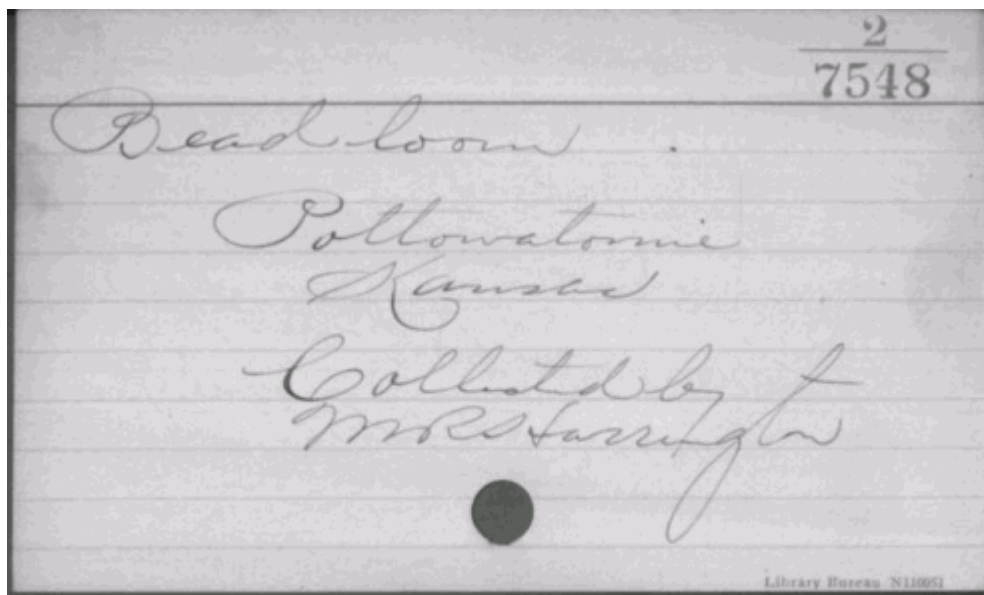 2
7548
Bead loom .
Pottowatomie
Kansas
Collected by
MRS Harrington
Library Bureau N110051